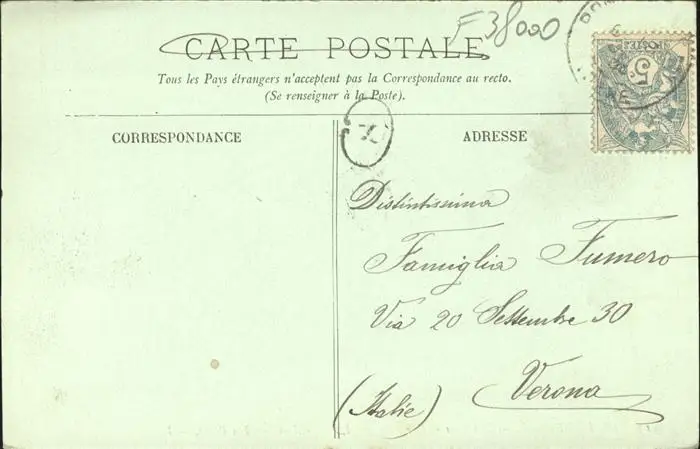 F38000
CARTE POSTALE
Tous les Pays étrangers n'acceptent pas la Correspondance au recto.
(Se renseigner à la Poste).
CORRESPONDANCE
ADRESSE
POSTES
5
Distintissima
Famiglia Fumero
Via 20 Settembre 30
Verona
(Italie)